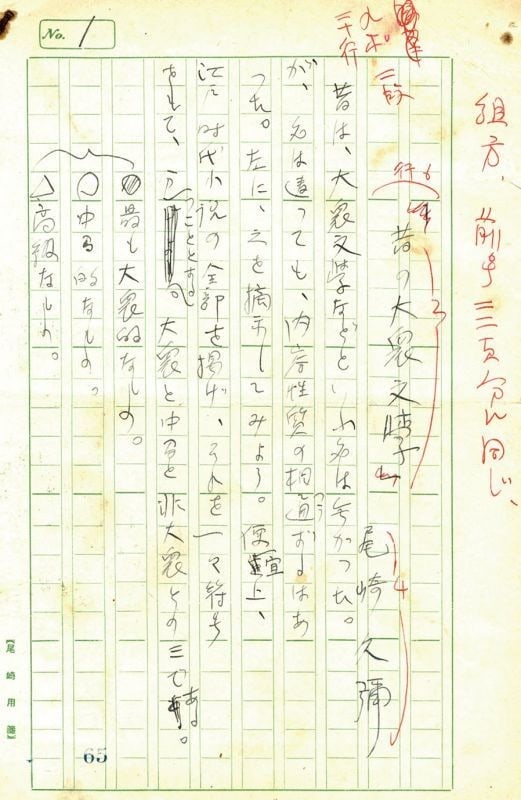 組方、前号三頁分に同じ、
九ポ
三十行
二段
No. 1
6行
昔の大衆文学
3
尾崎久彌
4
昔は、大衆文学などといふ名は無かつた。
が、名は違つても、内容性質の相通ずるはあ
つた。左に、之を摘示してみよう。便宜上、
江戸時代小説の全部を掲げ、それを一々符号
をもて、つことゝする。大衆と中間と非大衆との三である。
最も大衆的なもの。
○中間的なもの。
△高級なもの。
65
【尾崎用箋】